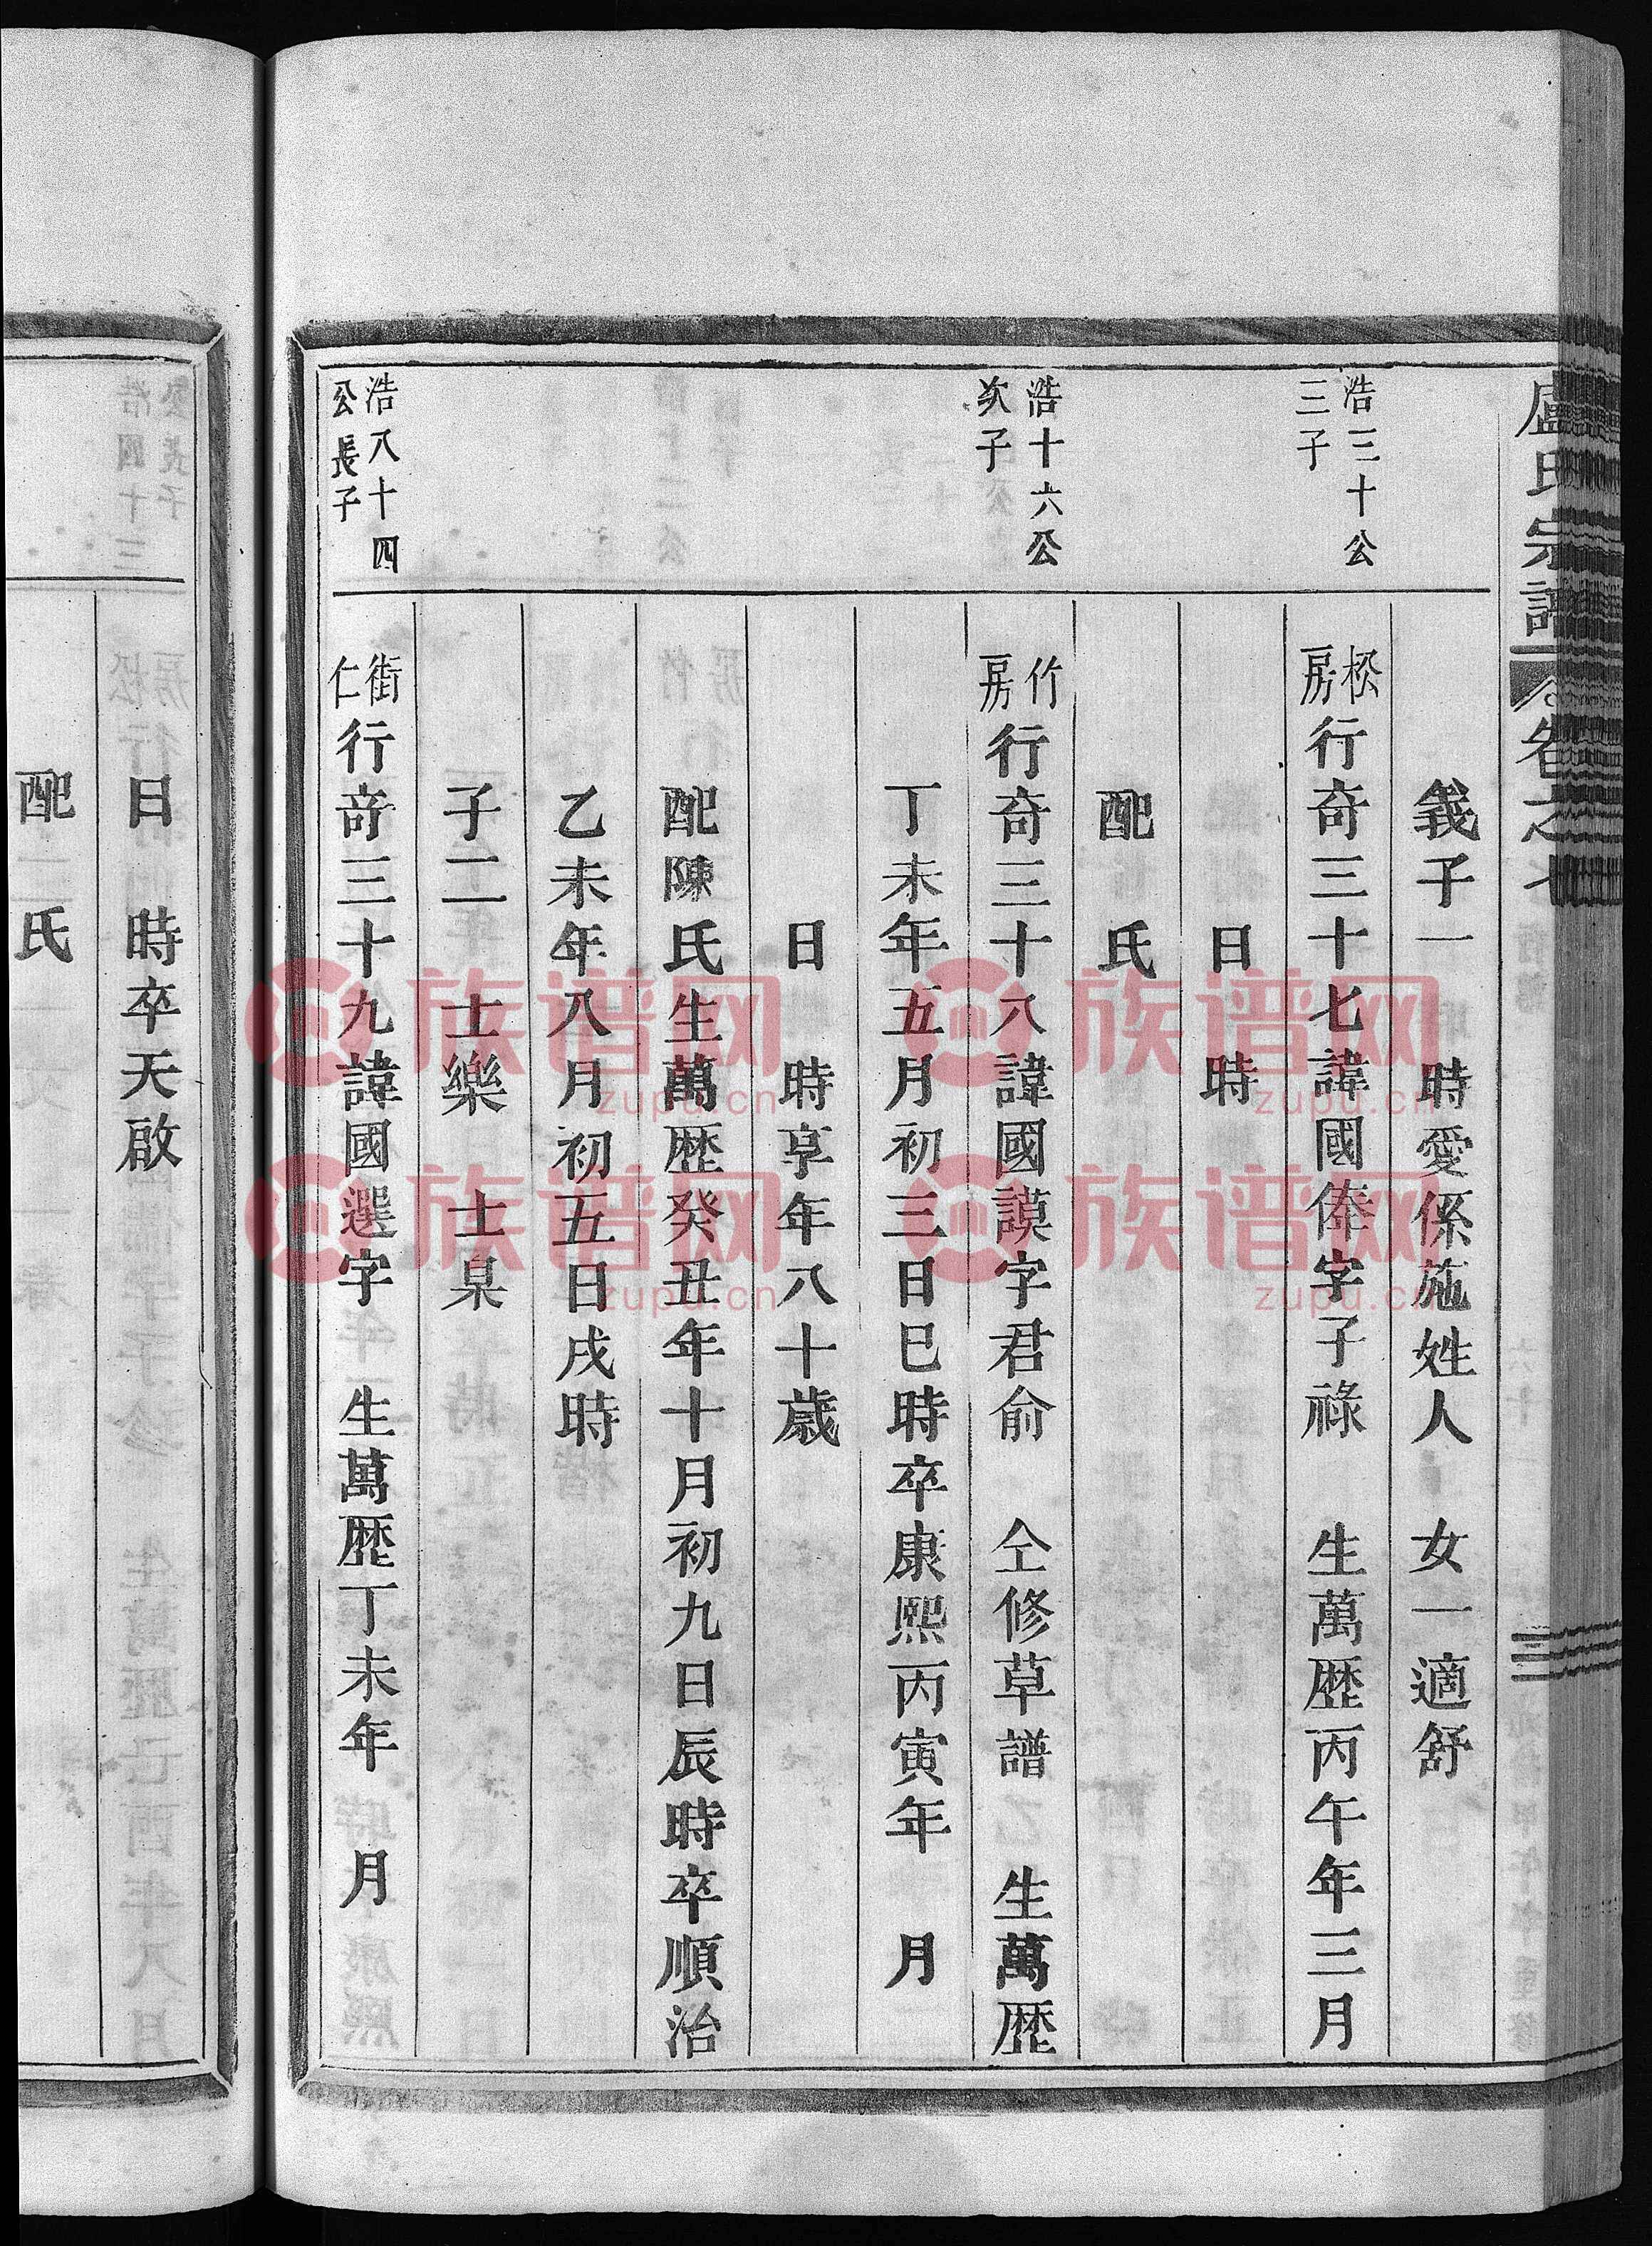 盧氏宗譜 卷之七
義子一 時愛係施姓人 女一適舒
浩三十公
三子
松房行奇三十七諱國俸字子祿 生萬歴丙午年三月
日 時
配 氏
浩十六公
次子
竹房行奇三十八諱國謨字君俞 仝修草譜 生萬歴
丁未年五月初三日巳時卒康熙丙寅年 月
日 時享年八十歳
配陳氏生萬歴癸丑年十月初九日辰時卒順治
乙未年八月初五日戌時
子二 士樂 士臬
浩八十四
公長子
街仁行奇三十九諱國選字 生萬歴丁未年 月
日 時卒天啟
配 氏
族谱网
zupu.cn
族谱网
zupu.cn
族谱网
zupu.cn
族谱网
zupu.cn